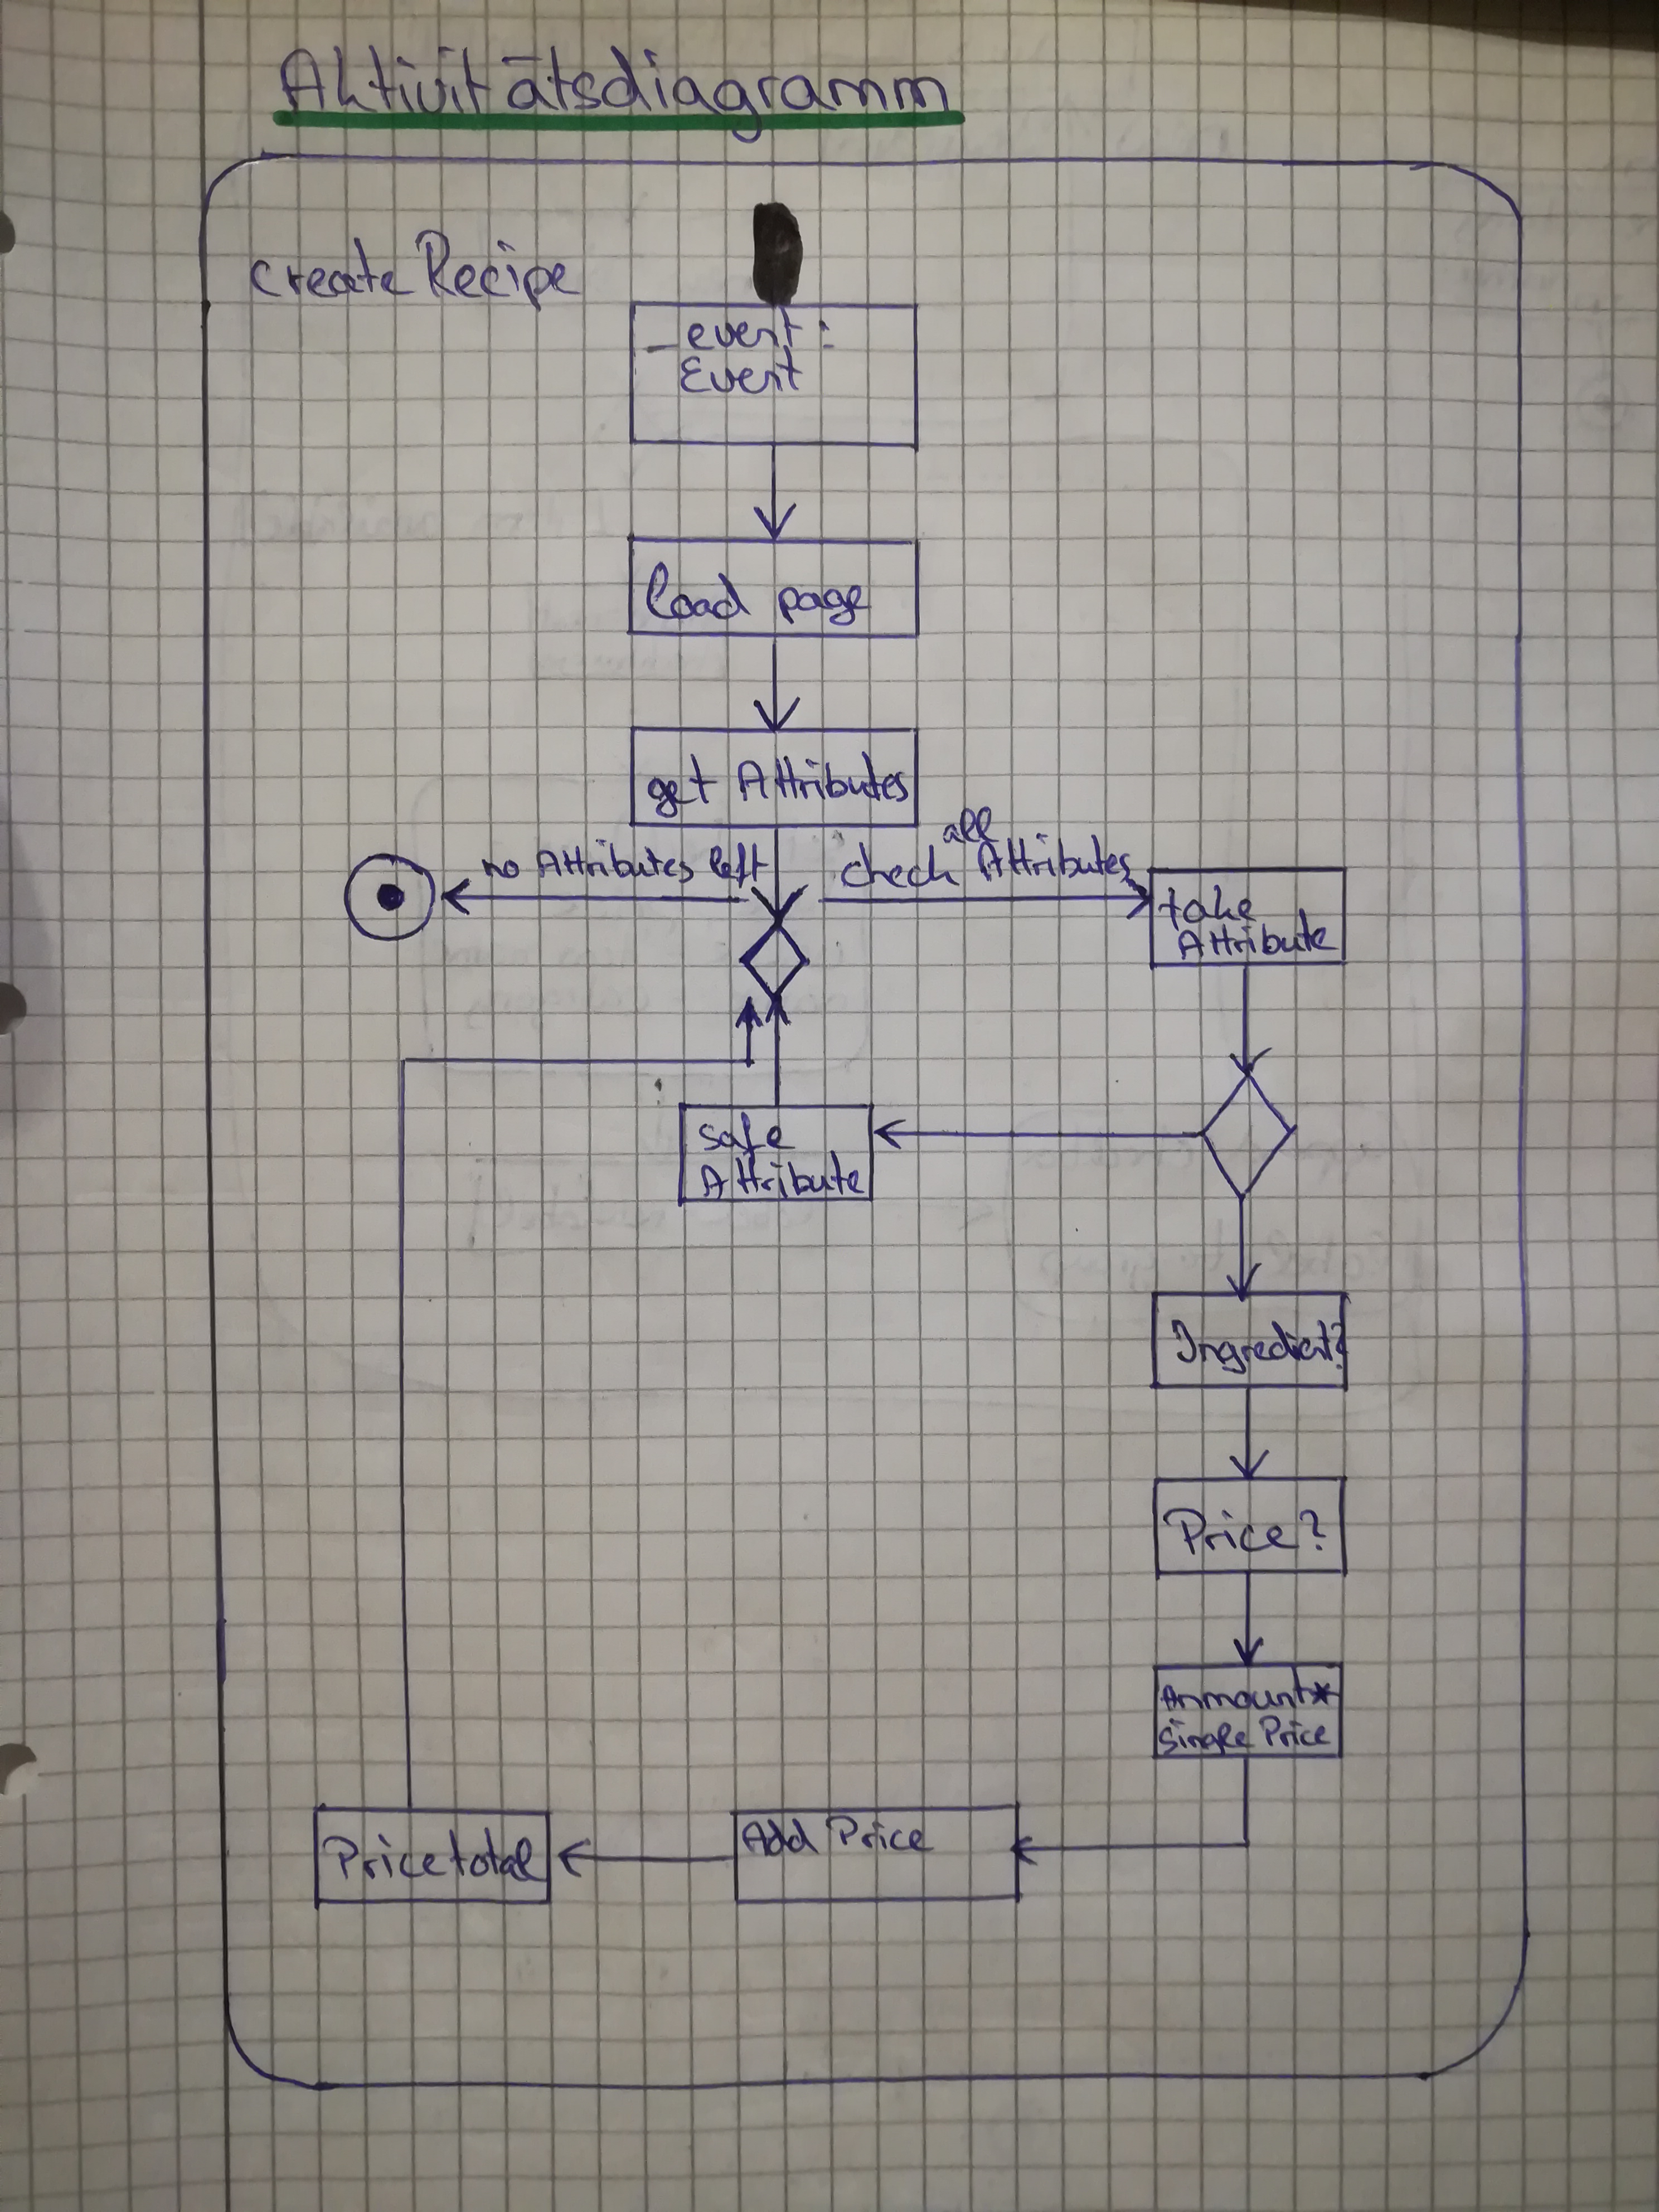 Aktivitätsdiagramm
create Recipe
_event:
Event
load page
get Attributes
no Attributes left
all
check Attributes
take
Attribute
safe
Attribute
Ingredient?
Price?
Anmount*
single Price
Add Price
Price total